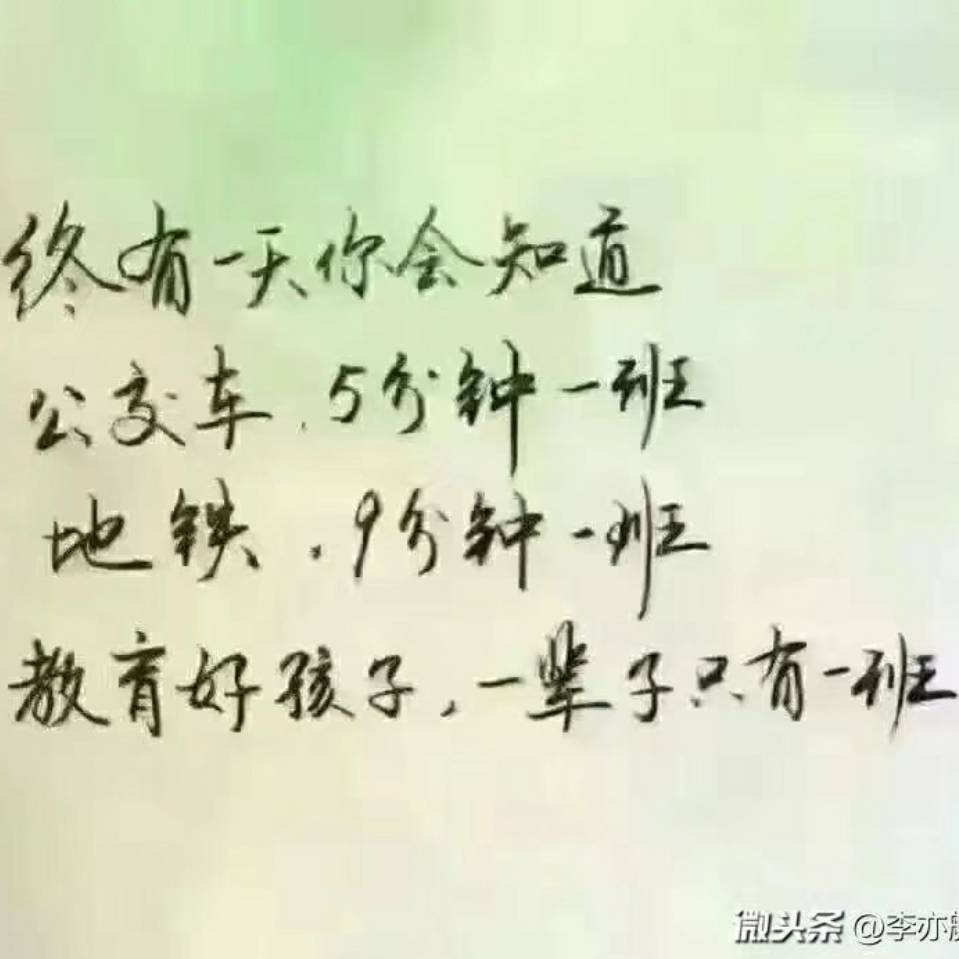 终有一天你会知道
公交车.5分钟一班
地铁.9分钟一班
教育好孩子,一辈子只有一班
微头条 @李亦